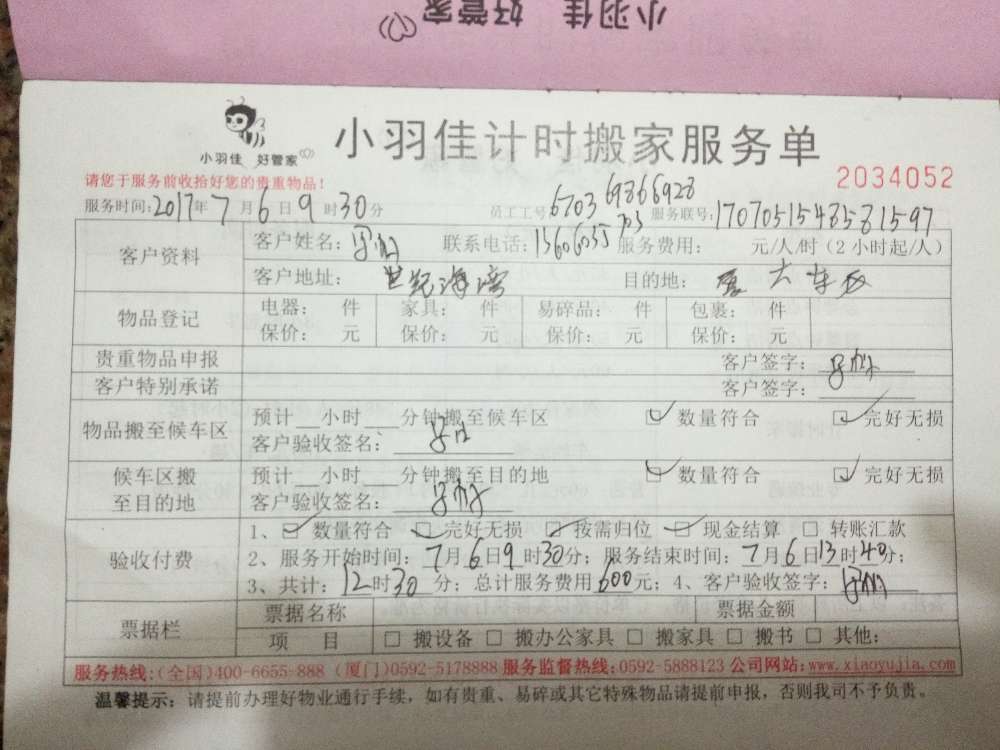 小羽佳 好管家
小羽佳 好管家
小羽佳计时搬家服务单
请您于服务前收拾好您的贵重物品!
2034052
服务时间:2017年7月6日9时30分 员工工号:6703 69866928 服务联号:1707051548581597
客户资料 客户姓名: 联系电话: 服务费用: 元/人/时(2小时起/人)
客户地址:世纪海湾 目的地:厦大车板
物品登记 电器: 件 家具: 件 易碎品: 件 包裹: 件
保价: 元 保价: 元 保价: 元 保价: 元
贵重物品申报 客户签字:
客户特别承诺 客户签字:
物品搬至候车区 预计__小时__分钟搬至候车区 ☑数量符合 ☑完好无损
客户验收签名:
候车区搬至目的地 预计__小时__分钟搬至目的地 ☑数量符合 ☑完好无损
客户验收签名:
验收付费 1、☑数量符合 ☑完好无损 ☑按需归位 ☑现金结算 □转账汇款
2、服务开始时间:7月6日9时30分;服务结束时间:7月6日13时40分;
3、共计:12时30分;总计服务费用600元;4、客户验收签字:
票据栏 票据名称 票据金额
项 目 □搬设备 □搬办公家具 □搬家具 □搬书 □其他:
服务热线:(全国)400-6655-888 (厦门)0592-5178888 服务监督热线:0592-5888123 公司网站:www.xiaoyujia.com
温馨提示:请提前办理好物业通行手续,如有贵重、易碎或其它特殊物品请提前申报,否则我司不予负责。